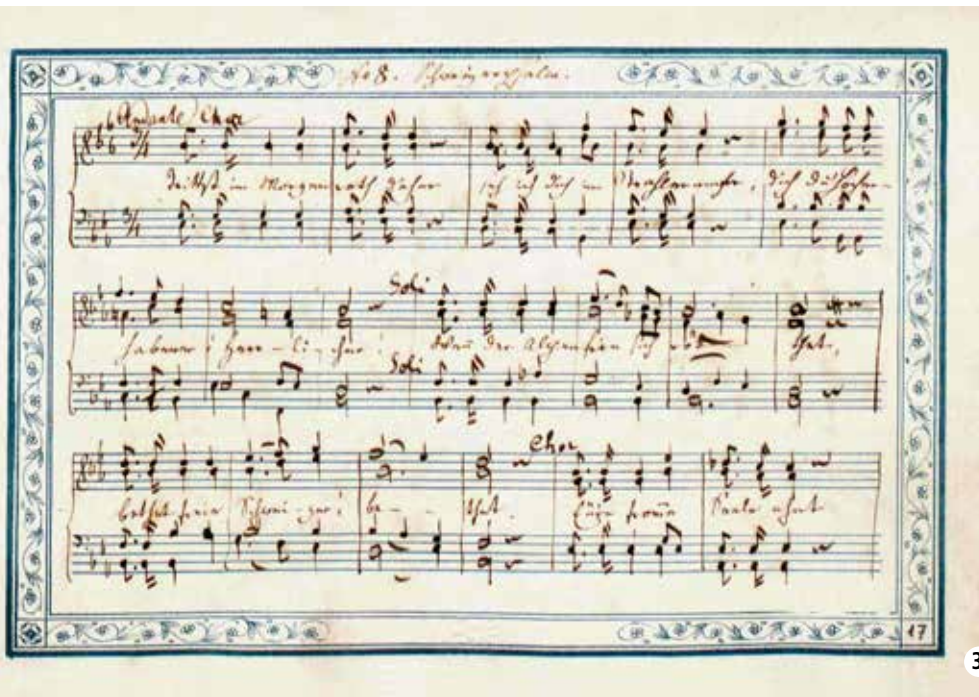 No 8. Schweizerpsalm.
Andante Chor
3/4
Trittst im Morgenroth daher seh ich dich im Strahlenmeer, dich du Hocher-
3/4
Soli
habener! Herr-li-cher! Wenn der Alpenfirn sich rö- thet,
Soli
Chor
bethet freie Schwei-zer! be- - thet. Eure from̄e Seele ahnt
17
3